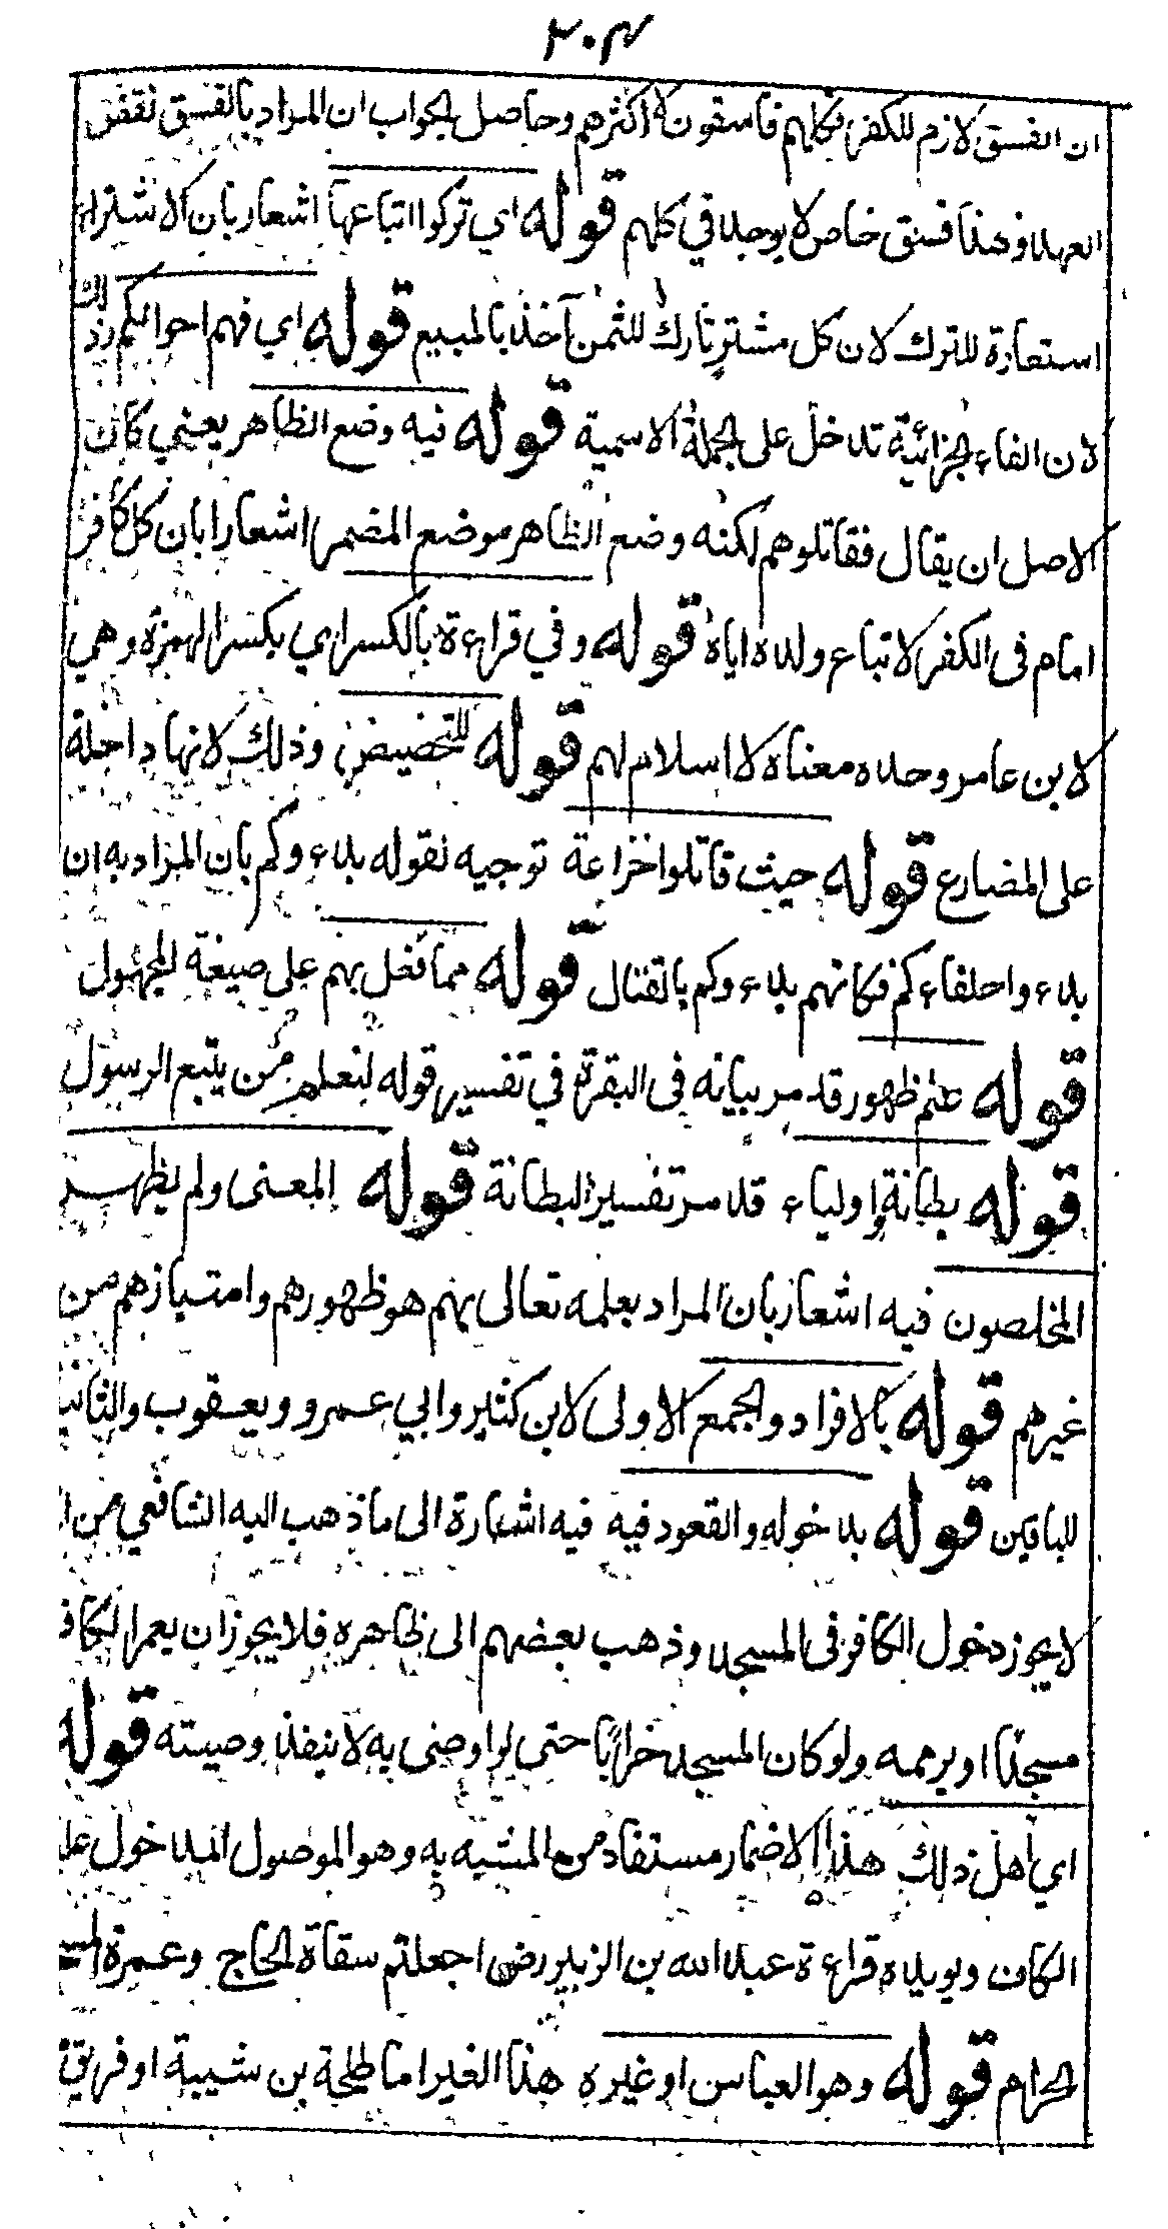 ٣٠٤
ان الفسق لازم للكفر فكلهم فاسقون لا أكثرهم وحاصل الجواب ان المراد بالفسق نقض
العهد وهذا فسق خاص لا يوجد في كلهم قوله اي تركوا اتباعها اشعار بان الاشتراء
استعارة للترك لان كل مشتر تارك للثمن آخذ بالمبيع قوله اي فهم احوالكم وذلك
لان الفاء الجزائية تدخل على الجملة الاسمية قوله فيه وضع الظاهر يعني كان
الاصل ان يقال فقاتلوهم لكنه وضع الظاهر موضع المضمر اشعارا بان كل كافر
امام فى الكفر لاتباع ولده اياه قوله وفي قراءة بالكسر اي بكسر الهمزة وهي
لابن عامر وحده معناه لا اسلام لهم قوله للتحضيض وذلك لانها داخلة
على المضارع قوله حيث قاتلوا خزاعة توجيه لقوله بدءوكم بان المراد به ان
بدءوا حلفاءكم فكانهم بدءوكم بالقتال قوله مما فعل بهم على صيغة المجهول
قوله علم ظهور قد مر بيانه فى البقرة في تفسير قوله لنعلم من يتبع الرسول
قوله بطانة واولياء قد مر تفسير البطانة قوله المعنى ولم يظهر
المخلصون فيه اشعار بان المراد بعلمه تعالى بهم هو ظهورهم وامتيازهم من
غيرهم قوله بالافراد والجمع الاولى لابن كثير وابي عمرو ويعقوب والثانية
للباقين قوله بدخوله والقعود فيه فيه اشارة الى ما ذهب اليه الشافعي من ا
لا يجوز دخول الكافر فى المسجد وذهب بعضهم الى ظاهره فلا يجوز ان يعمر الكافر
مسجدا او يرممه ولو كان المسجد خرابا حتى لو اوصى به لا ينفذ وصيته قوله
اي أهل ذلك هذا الاضمار مستفاد من المشبه به وهو الموصول المدخول عليه
الكاف ويويده قراءة عبد الله بن الزبير رض اجعلتم سقاة الحاج وعمرة المسجد
الحرام قوله وهو العباس او غيره هذا الغير اما طلحة بن شيبة او فريق